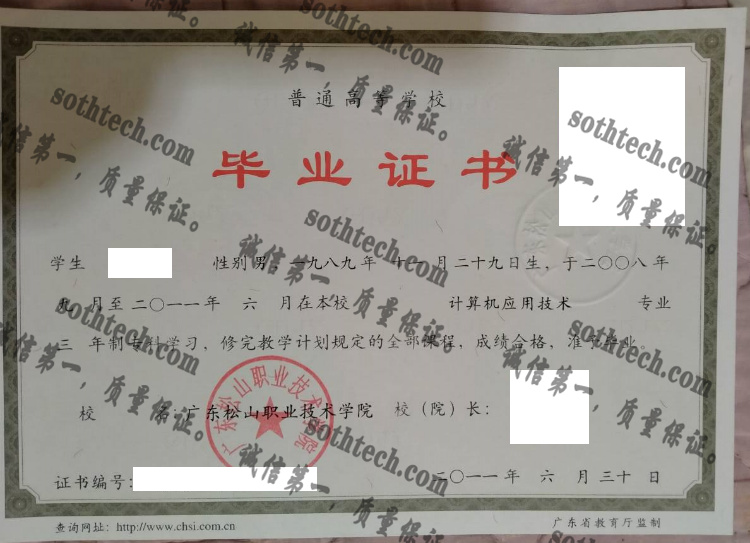 sothtech.com
诚信第一，质量保证。
普通高等学校
毕业证书
学生 性别男，一九八九年 十一月二十九日生，于二〇〇八年
九 月至二〇一一年 六 月在本校 计算机应用技术 专业
三 年制专科学习，修完教学计划规定的全部课程，成绩合格，准予毕业。
校 名：广东松山职业技术学院 校（院）长：
广东松山职业技术学院
证书编号： 二〇一一年 六 月三十日
查询网址：http://www.chsi.com.cn 广东省教育厅监制
sothtech.com
诚信第一，质量保证。
sothtech.com
诚信第一，质量保证。
sothtech.com
诚信第一，质量保证。
sothtech.com
诚信第一，质量保证。
sothtech.com
诚信第一，质量保证。
sothtech.com
诚信第一，质量保证。